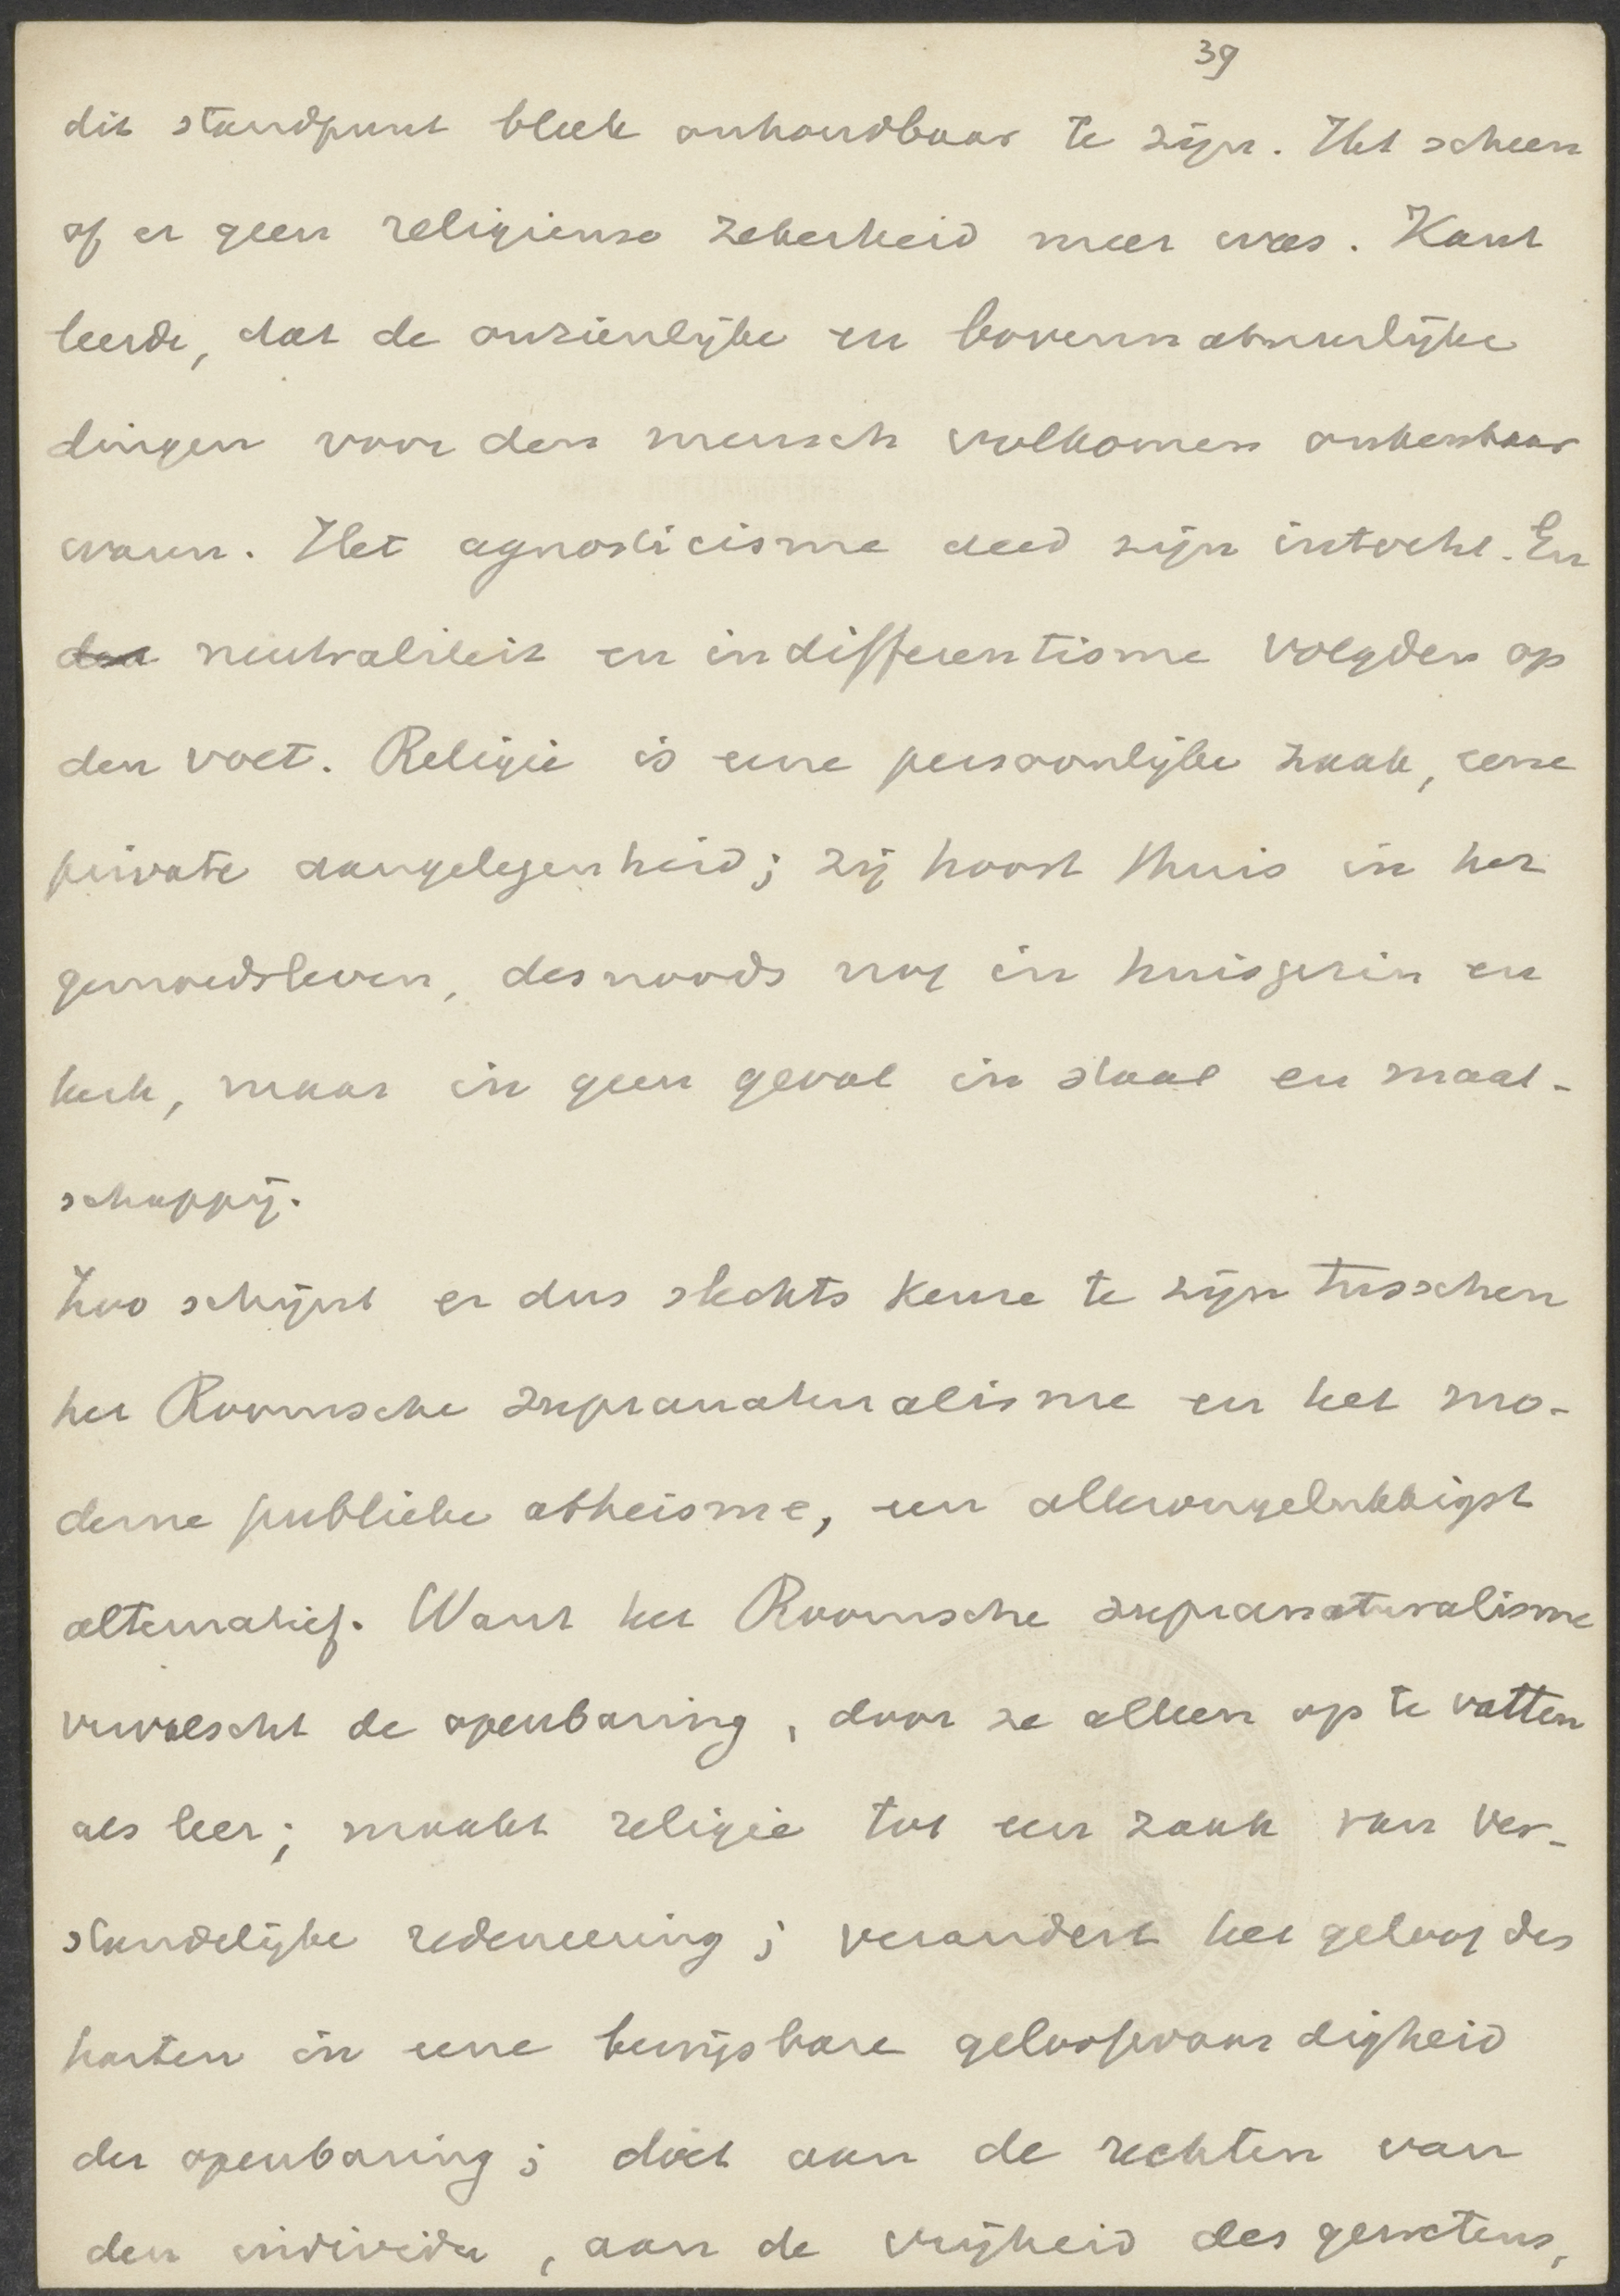 39
dit standpunt bleek onhoudbaar te zijn. Het scheen
of er geen religieuse zekerheid meer was. Kant
leerde, dat de onzienlijke en bovennatuurlijke
dingen voor den mensch volkomen onkenbaar
waren. Het agnosticisme deed zijn intocht. En
neutraliteit en indifferentisme volgden op
den voet. Religie is eene persoonlijke zaak, eene
private aangelegenheid; zij hoort thuis in het
gemoedsleven, desnoods nog in huisgezin en
kerk, maar in geen geval in staat en maat-
schappij.
Zoo schijnt er dus slechts keuze te zijn tusschen
het Roomsche supranaturalisme en het mo-
derne publieke atheisme, een allerongelukkigst
alternatief. Want het Roomsche supranaturalisme
vervalscht de openbaring, door ze alleen op te vatten
als leer; maakt religie tot een zaak van ver-
standelijke redeneering; verandert het geloof des
harten in eene bewijsbare geloofwaardigheid
der openbaring; doet aan de rechten van
den individu, aan de vrijheid des gewetens,